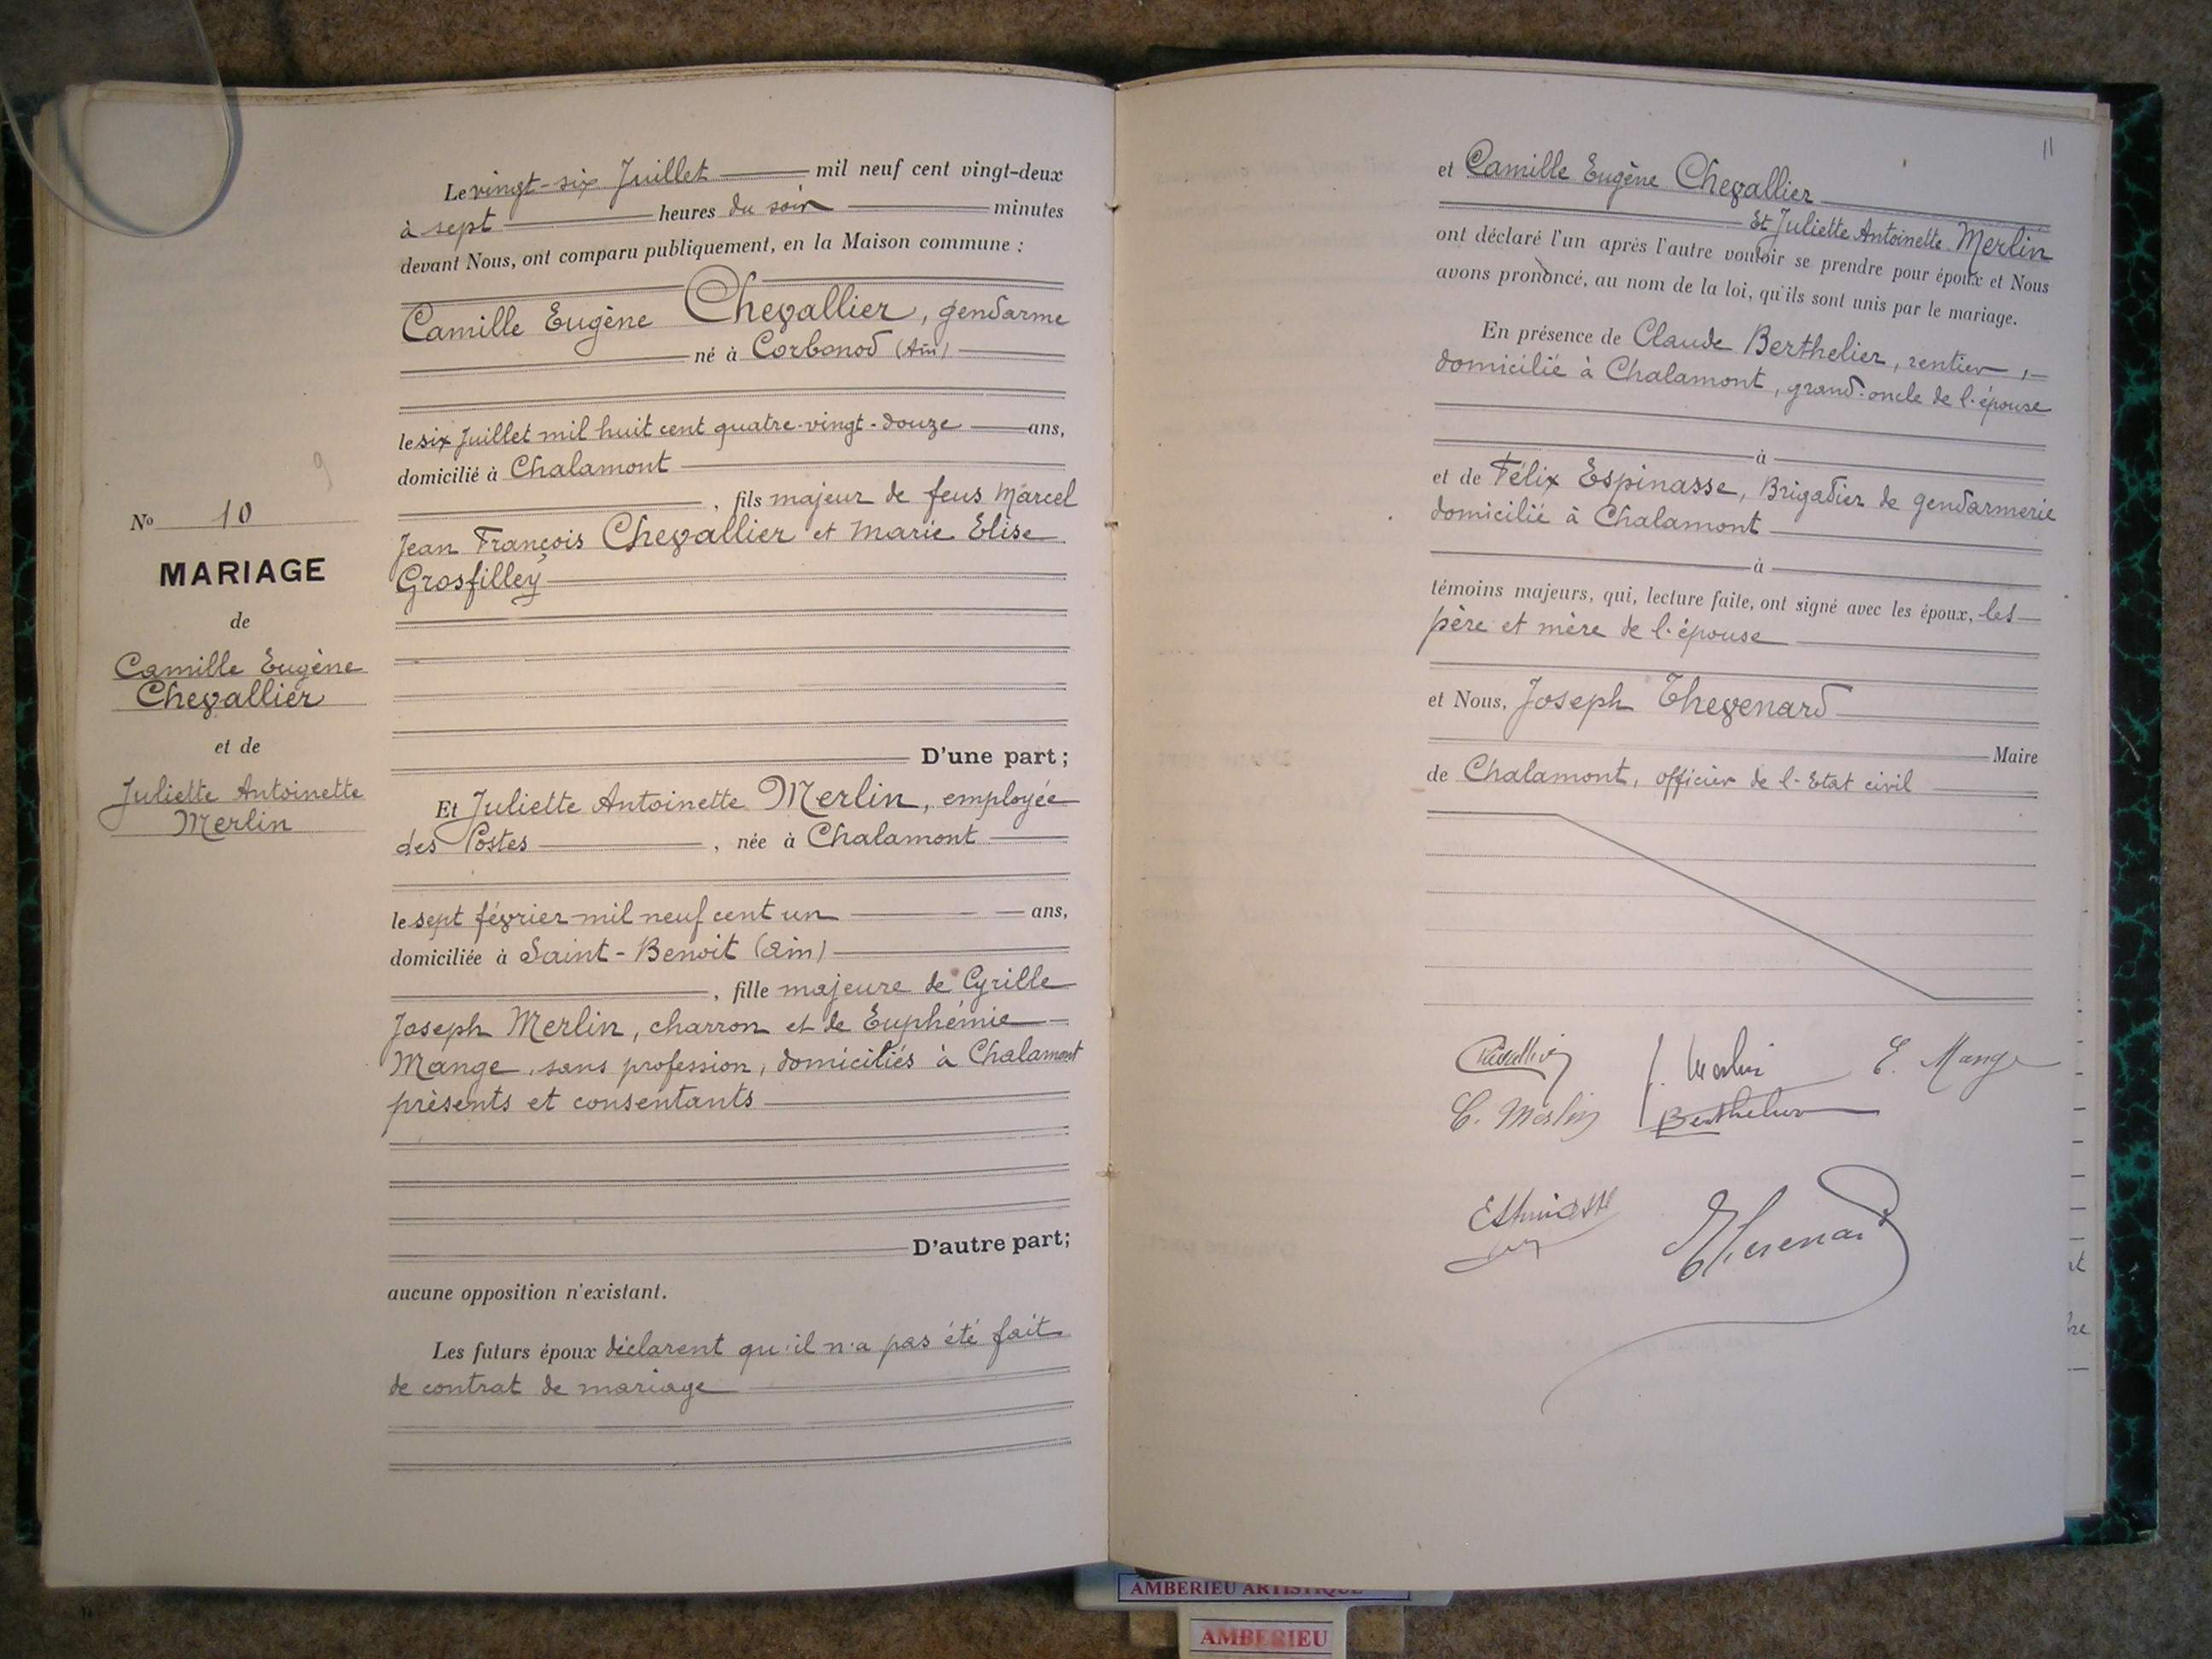 N° 10
MARIAGE
de
Camille Eugène
Chevallier
et de
Juliette Antoinette
Merlin
9
Le vingt-six Juillet mil neuf cent vingt-deux
à sept heures du soir minutes
devant Nous, ont comparu publiquement, en la Maison commune :
Camille Eugène Chevallier, gendarme
né à Corbonod (Ain)
le six Juillet mil huit cent quatre-vingt-douze ans,
domicilié à Chalamont
, fils majeur de feus Marcel
Jean François Chevallier et Marie Elise
Grosfilley
D'une part ;
Et Juliette Antoinette Merlin, employée
des Postes, née à Chalamont
le sept février mil neuf cent un ans,
domiciliée à Saint-Benoit (Ain)
, fille majeure de Cyrille
Joseph Merlin, charron et de Euphémie
Mange, sans profession, domiciliés à Chalamont
présents et consentants
D'autre part;
aucune opposition n'existant.
Les futurs époux déclarent qu'il n'a pas été fait
de contrat de mariage
11
et Camille Eugène Chevallier
Et Juliette Antoinette Merlin
ont déclaré l'un après l'autre vouloir se prendre pour époux et Nous
avons prononcé, au nom de la loi, qu'ils sont unis par le mariage.
En présence de Claude Berthelier, rentier,
domicilié à Chalamont, grand-oncle de l'épouse
à
et de Félix Espinasse, Brigadier de gendarmerie
domicilié à Chalamont
à
témoins majeurs, qui, lecture faite, ont signé avec les époux, les
père et mère de l'épouse
et Nous, Joseph Thevenard
Maire
de Chalamont, officier de l'Etat civil
Chevallier J. Merlin E. Mange
C. Merlin Berthelier
Espinasse Thevenard
AMBERIEU ARTISTIQUE
AMBERIEU